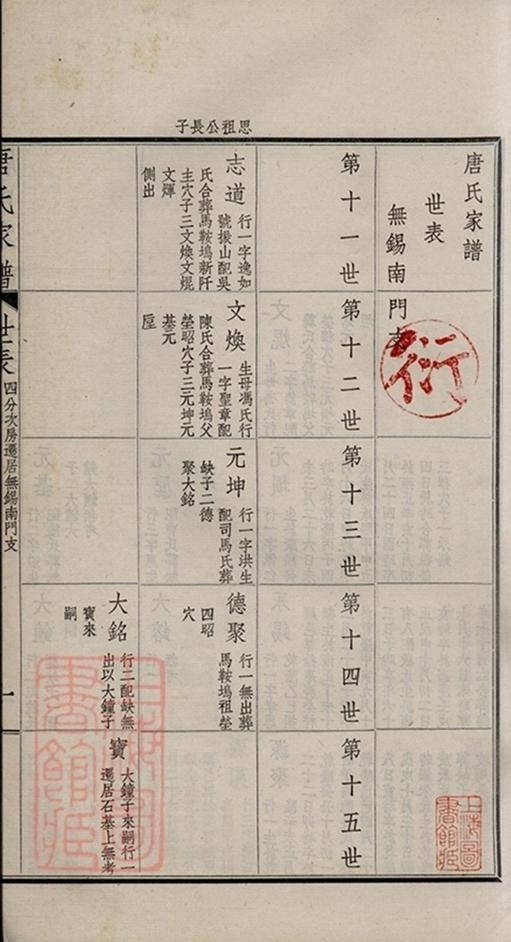 思祖公長子
唐氏家譜
世表
無錫南門支
衍
上海圖書館藏
第十一世
第十二世
第十三世
第十四世
第十五世
志道
行一字逸如
號振山配吳
氏合葬馬鞍塢新阡
主穴子三文煥文焜
文煇
側出
文煥
生母馮氏行
一字聖章配
陳氏合葬馬鞍塢父
塋昭穴子三元坤元
基元
垕
元坤
行一字洪生
配司馬氏葬
缺子二德
聚大銘
德聚
行一無出葬
馬鞍塢祖塋
四昭
穴
大銘
行二配缺無
出以大鐘子
寶來
嗣
寶
大鐘子來嗣行一
遷居石基上無考
唐氏家譜
世表
四分次房遷居無錫南門支
一
上海圖書館藏